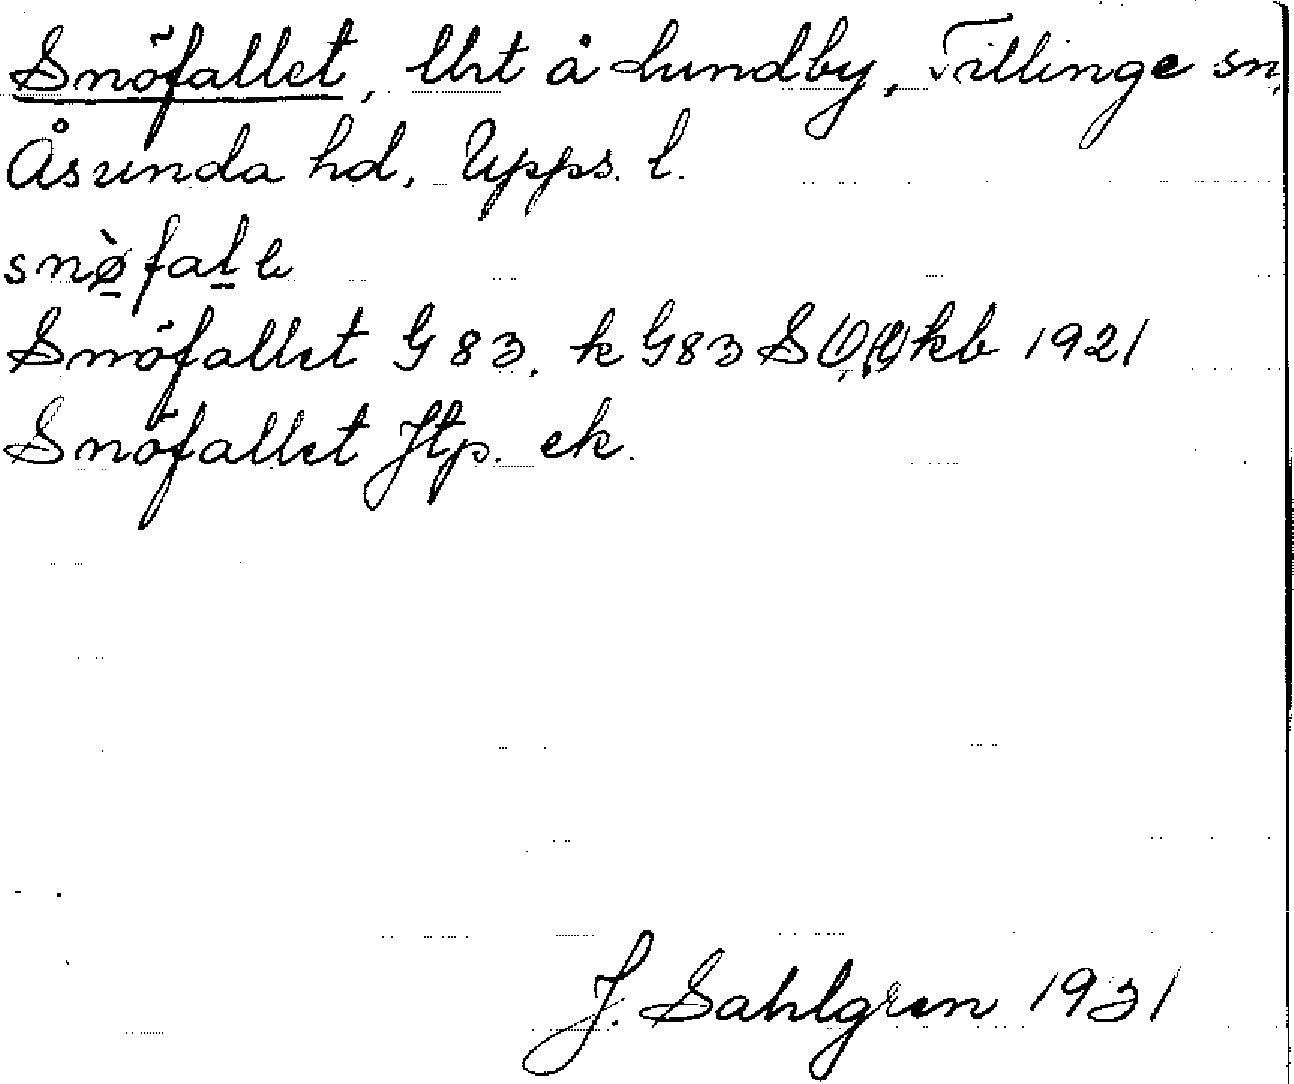 Snöfallet, lht å Lundby, Tillinge sn,
Åsunda hd, Upps. l.
snø̀fal
Snöfallet G 83. k G83 kb 1921
Snöfallet Jtp. ek.
J. Sahlgren 1931